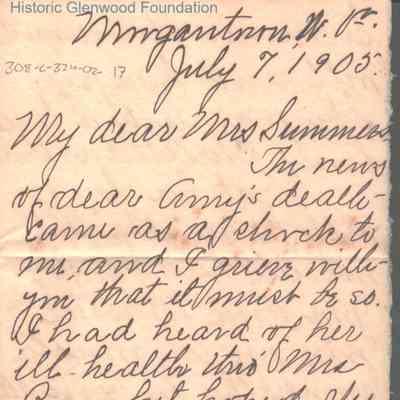 Historic Glenwood Foundation
Morgantown, W. Va.
July 7, 1905.
308-C-324-02 17
My dear Mrs Summers
The news
of dear Amy's death
came as a shock to
me, and I grieve with
you that it must be so.
I had heard of her
ill-health thro' Mrs
but hoped